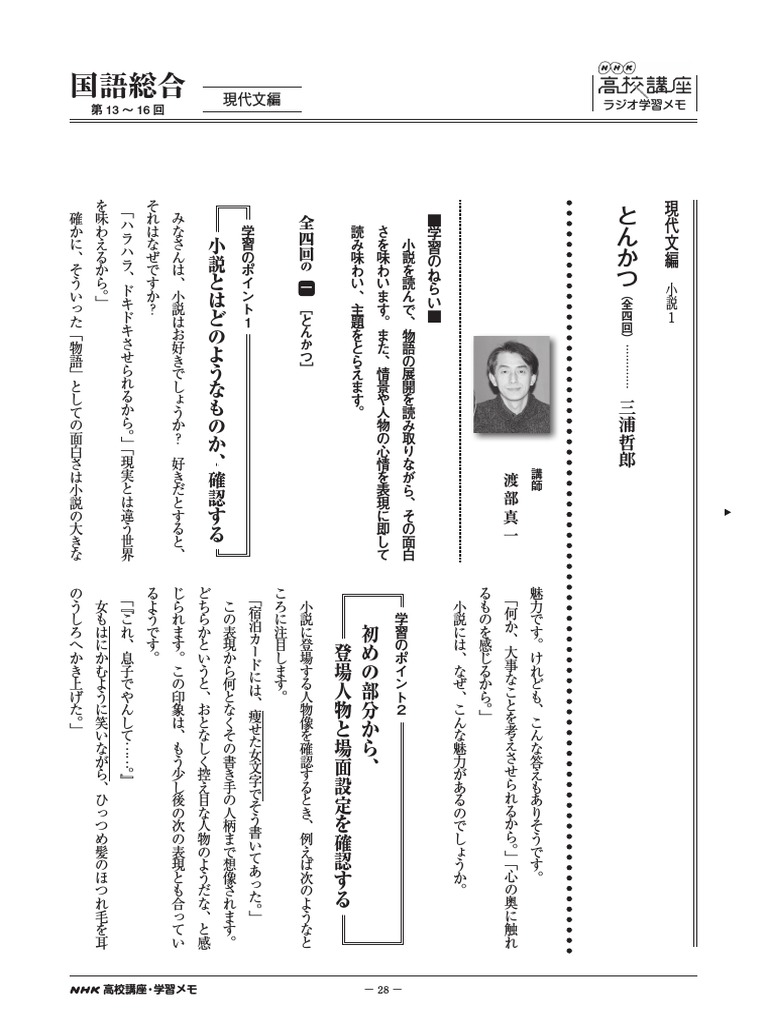 国語総合
第 13 ～ 16 回
現代文編
NHK
高校講座
ラジオ学習メモ
現代文編　小説1
とんかつ〈全四回〉…………三浦哲郎
講師
渡部真一
■学習のねらい■
小説を読んで、物語の展開を読み取りながら、その面白
さを味わいます。また、情景や人物の心情を表現に即して
読み味わい、主題をとらえます。
全四回の 一 ［とんかつ］
学習のポイント1
小説とはどのようなものか、確認する
みなさんは、小説はお好きでしょうか？　好きだとすると、
それはなぜですか？
「ハラハラ、ドキドキさせられるから。」「現実とは違う世界
を味わえるから。」
確かに、そういった「物語」としての面白さは小説の大きな
魅力です。けれども、こんな答えもありそうです。
「何か、大事なことを考えさせられるから。」「心の奥に触れ
るものを感じるから。」
小説には、なぜ、こんな魅力があるのでしょうか。
学習のポイント2
初めの部分から、
登場人物と場面設定を確認する
小説に登場する人物像を確認するとき、例えば次のようなと
ころに注目します。
「宿泊カードには、痩せた女文字でそう書いてあった。」
この表現から何となくその書き手の人柄まで想像されます。
どちらかというと、おとなしく控え目な人物のようだな、と感
じられます。この印象は、もう少し後の次の表現とも合ってい
るようです。
「『これ、息子でやんして……。』
女もはにかむように笑いながら、ひっつめ髪のほつれ毛を耳
のうしろへかき上げた。」
NHK 高校講座・学習メモ
－ 28 －